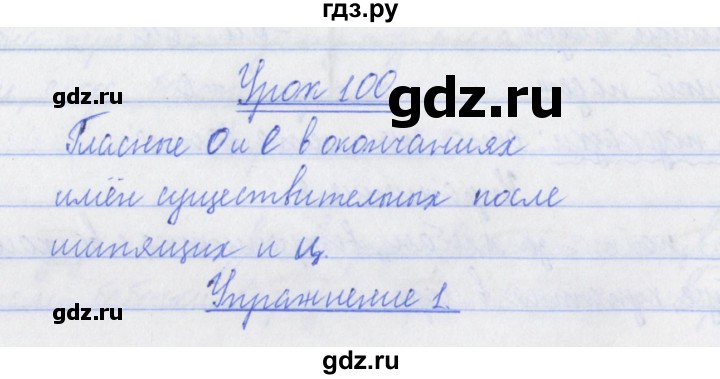 гдз.ру
Урок 100
gdz.ru
gdz.ru
Гласные о и е в окончаниях
имён существительных после
шипящих и ц.
gdz.ru
gdz.ru
Упражнение 1.
gdz.ru